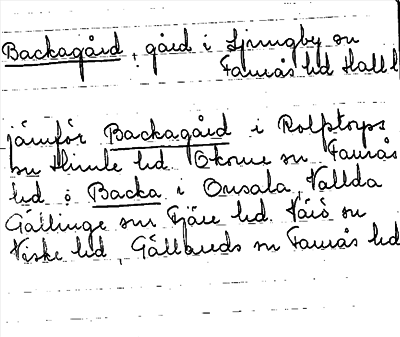 Backagård, gård i Ljungby sn
Faurås hd Hall l
jämför Backagård i Rolfstorps
sn Himle hd. Okome sn Faurås
hd o Backa i Onsala, Vallda
Gällinge snr Fjäre hd. Värö sn
Viske hd, Gällareds sn Faurås hd